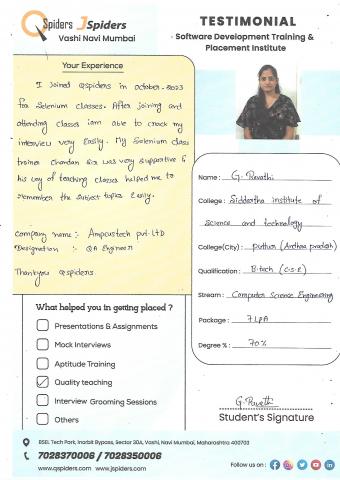 QSpiders JSpiders
Vashi Navi Mumbai
TESTIMONIAL
Software Development Training &
Placement Institute
Your Experience
I Joined Qspiders in october-2023
for Selenium classes. After joining and
attending classes iam able to crack my
interview very Easily. My Selenium class
trainer Chandan Sir was very supportive &
his way of teaching classes helped me to
remember the subject topics Easily.
Company name:- Ampcustech pvt.LTD
Designation :- QA Engineer
Thankyou Qspiders.
Name : G. Revathi
College : Siddartha institute of
science and technology
College(City) : puttur (Andhra pradesh)
Qualification : B.tech (C.S.E)
Stream : Computer Science Engineering
Package : 7 LPA
Degree % : 70%
What helped you in getting placed ?
Presentations & Assignments
Mock Interviews
Aptitude Training
Quality teaching
Interview Grooming Sessions
Others
G. Revathi
Student's Signature
BSEL Tech Park, Inorbit Bypass, Sector 30A, Vashi, Navi Mumbai, Maharashtra 400703
7028370006 / 7028350006
www.qspiders.com www.jspiders.com
Follow us on :